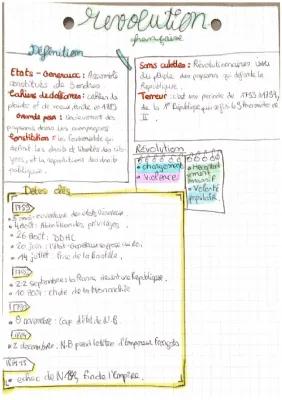 Revolution
française
Définition
Etats-Generaux: Assemblée
constituée de 3 ordres
Cahiers de doléances: cahiers de
plainte et de voeux, écrits en 1789
Grande peur: Soulèvement des
paysans dans les campagnes
Constitution: les fondements qui
définit les droits et libertés des citoy-
ens, et la répartitions des droits
politiques.
Sans culottes: Révolutionnaires issus
du peuple, des paysans qui défendent la
République.
Terreur: c'est une période de 1793 à 1794,
de la 1e République
II
Révolution
• changement
• violence
• Volonté
populaire
Dates clés
1789
• 5 mai: ouverture des états Generaux
• 4 Août: Abolition des privilèges.
• 26 Août: DDHC
• 20 juin:
• 14 juillet: Prise de la Bastille.
• 22 septembre: la France devient une République.
• 10 Août: chute de la monarchie
• 9 novembre: Coup d'Etat de N.B.
1804
• 2 decembre: N.B prend le titre d'Empereur Français
• echec de N.B, fin de l'Empire.